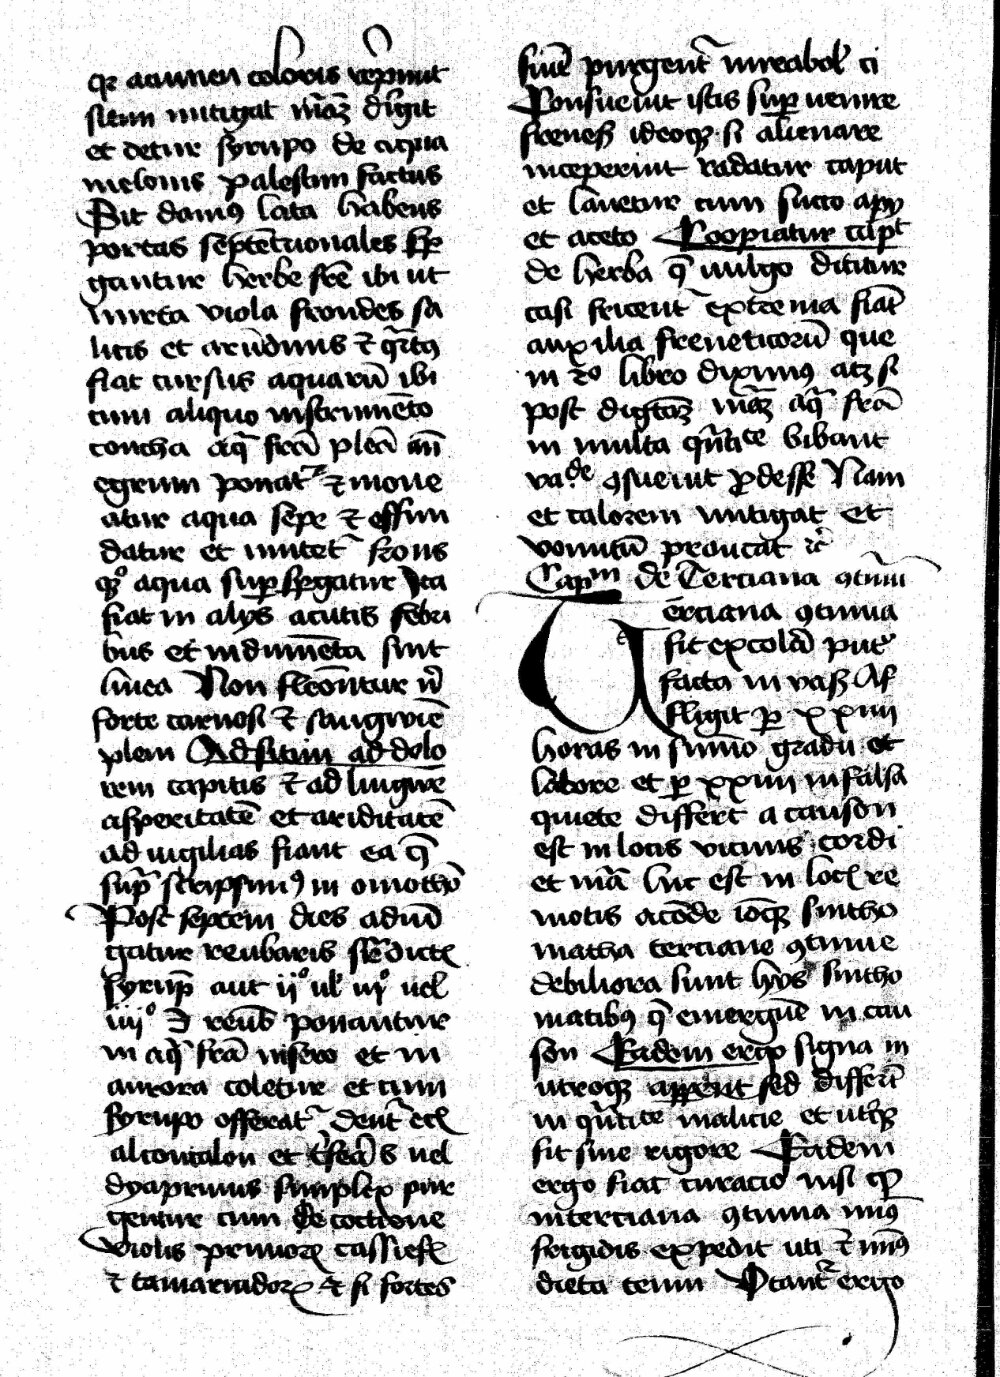 qr acumen coloris rep̄mit
sitim mitigat mām dirigit
et detur syrupo de aqua
melonis palestini factus
Sit domus lata habens
portas septētrionales spar
gantur herbe frē ibi ut
mirta viola frondes sa
licis et arūdinis ⁊ q̄rcus
fiat cursus aquarū ibi
cum aliquo instrumēto
concha aq̄ frā plēa an̄
egrum ponat᷑ ⁊ moue
atur aqua sepe ⁊ effun
datur et mutet᷑ frons
qꝫ aqua suꝑspgatur Ita
fiat in alijs acutis febri
bus et indumēta sint
linea Non fleōntur n̄
forte carnosi ⁊ sanguinē
pleni Ad sitim ad dolo
rem capitis ⁊ ad lingue
asperitatē et ariditatē
ad vigilias fiant ea q̄
sup̄ scripsimꝰ in omothō
Post septem dies adiuū
gatur reubarb sr̄edictꝭ
syrup̄ aut ijº ul iijº uel
iiijº ʒ reub̄ ponantur
in aq̄ frā in sero et in
aurora coletur et cum
syrupo offerat᷑ dent᷑ ecꝭ
alconcalon et t̄feā s uel
dyaprunis simplex pur
gentur cum decoctione
violis prunorꝝ cassiefꝭ
⁊ tamarindorꝝ Et si fortes
fiūt purgent᷑ mirabol ci
Consueuit istis suꝑuenire
frenesis ideoqꝫ si alienare
inceperint radatur caput
et lauetur cum succo apij
et aceto Coopiatur capt
de herba q̄ uulgo dicitur
casi fricent᷑ extrema fiāt
auxilia freneticorū que
in 2º libro diximꝰ atꝫ si
post digtōꝫ māꝫ aq̄ frā
in multa q̄ntitate bibant
valde ꝯsueuit ꝓdesse Nam
et calorem mitigat et
vomitū prouocat ⁊c̄
Capᵐ de Terciana ꝯtinui
Terciana ꝯtinua
fit ex colā put᷑
facta in vasis Af
fligit ꝑ xxiiii
horas in sūmo gradu et
labore et ꝑ xxiiii in falsa
quiete differt a causon
est in locis vicinis cordi
et mā huc est in locꝭ re
motis a corde ioqꝫ sintho
matha terciane ꝯtinue
debiliora sunt hijs sintho
matibꝰ q̄ emergūt in cau
son Eadem ergo signa in
utroqꝫ apperēt sed differt
in q̄ntitate malicie et utqꝫ
fit sine rigore Eadem
ergo fiat curacio nisi qꝑ
in terciana ꝯtinua minꝰ
frigidis expedit uti ⁊ minꝰ
dieta tenui Utant᷑ ergo